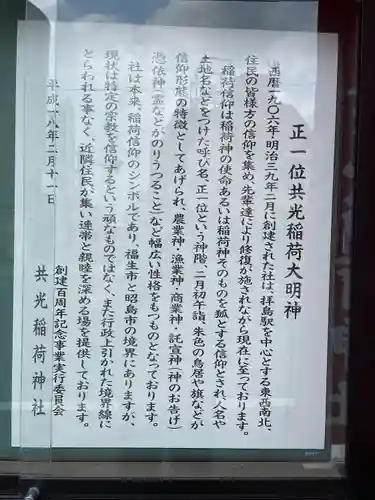 正一位共光稲荷大明神
西暦一九〇六年・明治三九年二月に創建された社は、拝島駅を中心とする東西南北、
住民の皆様方の信仰を集め、先輩達により修復が施されながら現在に至っております。
稲荷信仰は稲荷神の使命あるいは稲荷神そのものを狐とする信仰とされ、人名や
土地名などをつけた呼び名、正一位という神階、二月初午詣、朱色の鳥居や旗などが
信仰形態の特徴としてあげられ、農業神・漁業神・商業神・託宣神(神のお告げ)
憑依神(霊などがのりうつること)など幅広い性格をもつものとなっております。
社は本来、稲荷信仰のシンボルであり、福生市と昭島市の境界にありますが、
現状は特定の宗教を信仰するという頑なものではなく、また行政上引かれた境界線に
とらわれる事なく、近隣住民が集い連帯と親睦を深める場を提供しております。
平成一八年二月十一日
創建百周年記念事業実行委員会
共光稲荷神社